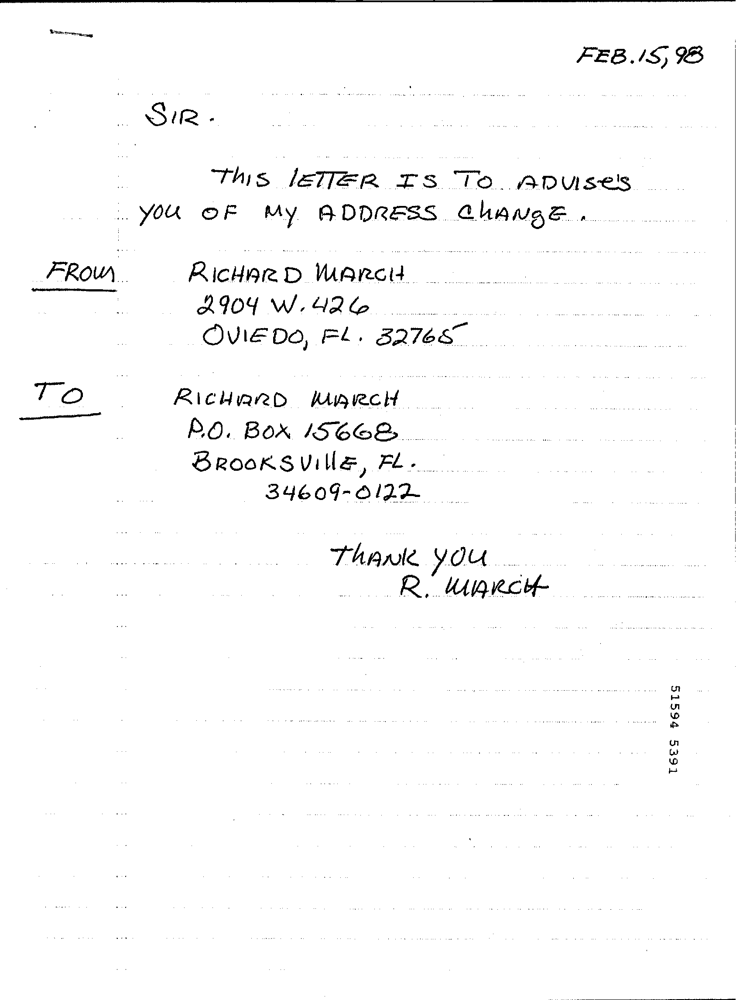 FEB. 15, 98
SIR.
THIS LETTER IS TO ADVISE'S
YOU OF MY ADDRESS CHANGE.
FROM RICHARD MARCH
2904 W. 426
OVIEDO, FL. 32765
TO RICHARD MARCH
P.O. BOX 15668
BROOKSVILLE, FL.
34609-0122
THANK YOU
R. MARCH
51594 5391